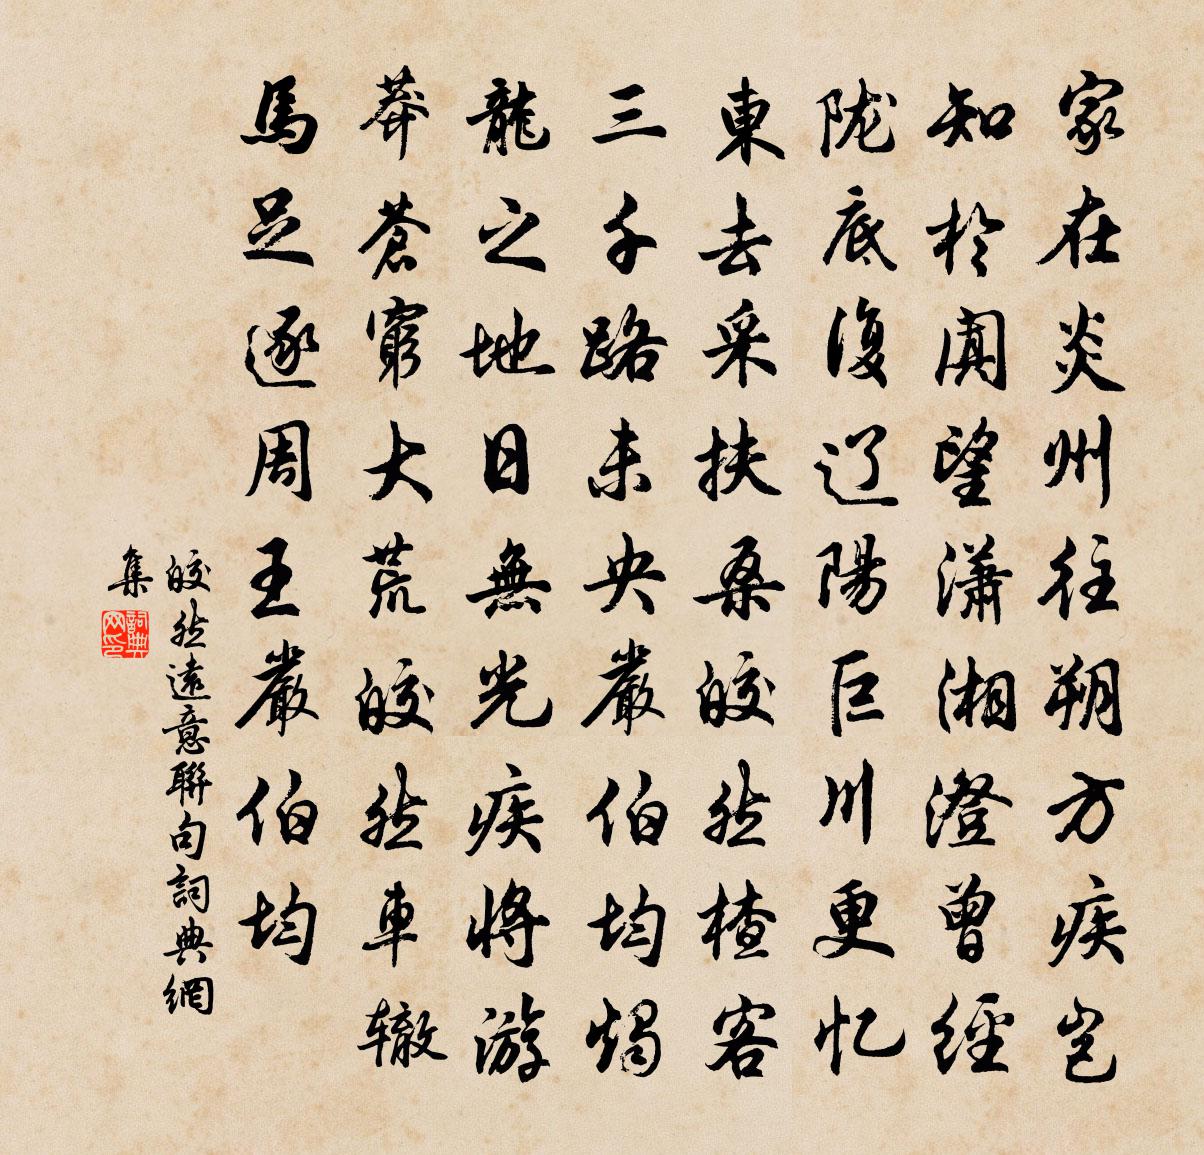 家在炎州往朔方疾岂
知於闐望瀟湘澄曾經
陇底復辽陽巨川更忆
東去采扶桑皎然楂客
三千路未央嚴伯均燭
龍之地日無光疾將游
莽蒼窮大荒皎然車辙
馬足逐周王嚴伯均
皎然遠意聯句詞典網
集
詞典网印